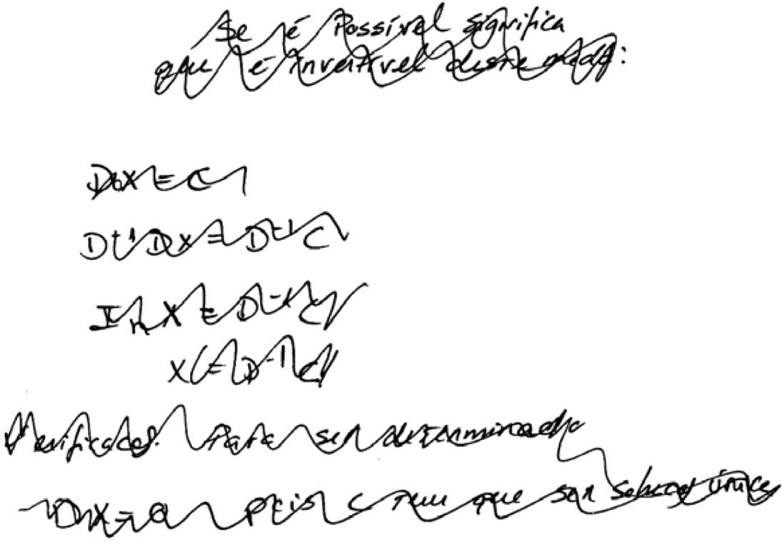 Se é Possível significa
que é invertível deste modo:
DX = C
D⁻¹DX = D⁻¹C
InX = D⁻¹C
X = D⁻¹C
Para ser determinado
DX = 0 pois C tem que ser solução única